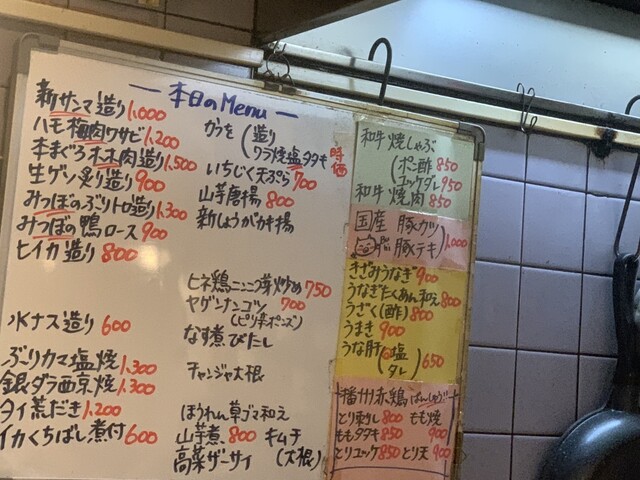 本日のMenu
新サンマ造り 1,000
ハモ梅肉ワサビ 1,200
本まぐろホホ肉造り 1,500
生ゲソ炙り造り 900
みつぼのぶりトロ造り 1,300
みつぼの鴨ロース 900
ヒイカ造り 800
水ナス造り 600
ぶりカマ塩焼 1,300
銀ダラ西京焼 1,300
タイ荒だき 1,200
イカくちばし煮付 600
かつを(造り
ワラ焼塩タタキ 時価
いちじく天ぷら 700
山芋唐揚 800
新しょうがかき揚
ヒネ鶏ニンニク芽炒め 750
ヤゲンナンコツ 700
(ピリ辛ポンズ)
なす煮びたし
チャンジャ大根
ほうれん草ゴマ和え
山芋煮 800 キムチ
高菜ザーサイ (大根)
和牛焼しゃぶ
(ポン酢 850
ユッケダレ 950
和牛焼肉 850
国産 豚カツ
豚テキ) 1,000
きざみうなぎ 900
うなぎたくあん和え 800
うざく(酢) 800
うまき 900
うな肝(塩
タレ) 650
播州赤鶏 ばんしゅう
とり刺し 800 もも焼
ももタタキ 850 900
とりユッケ 850 とり天 900